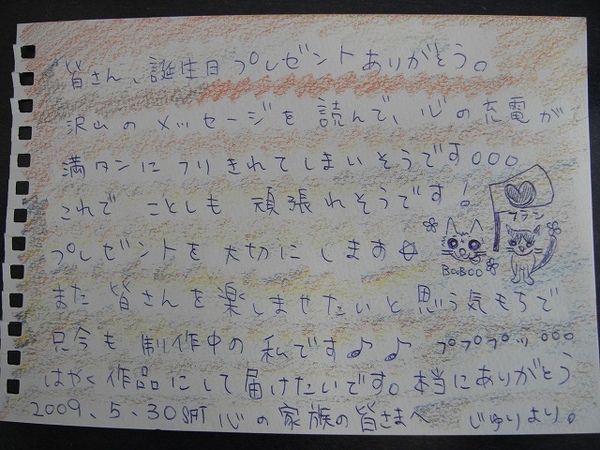 皆さん、誕生日プレゼントありがとう。
沢山のメッセージを読んで、心の充電が
満タンにフリきれてしまいそうです○○○
これで ことしも 頑張れそうです!
フラン
プレゼントを大切にします☆
BOBOO
また皆さんを楽しませたいと思う気もちで
只今も制作中の私です♪♪ プププッ○○○
はやく作品にして届けたいです。本当にありがとう
2009、5、30 心の家族の皆さまへ じゅりより。